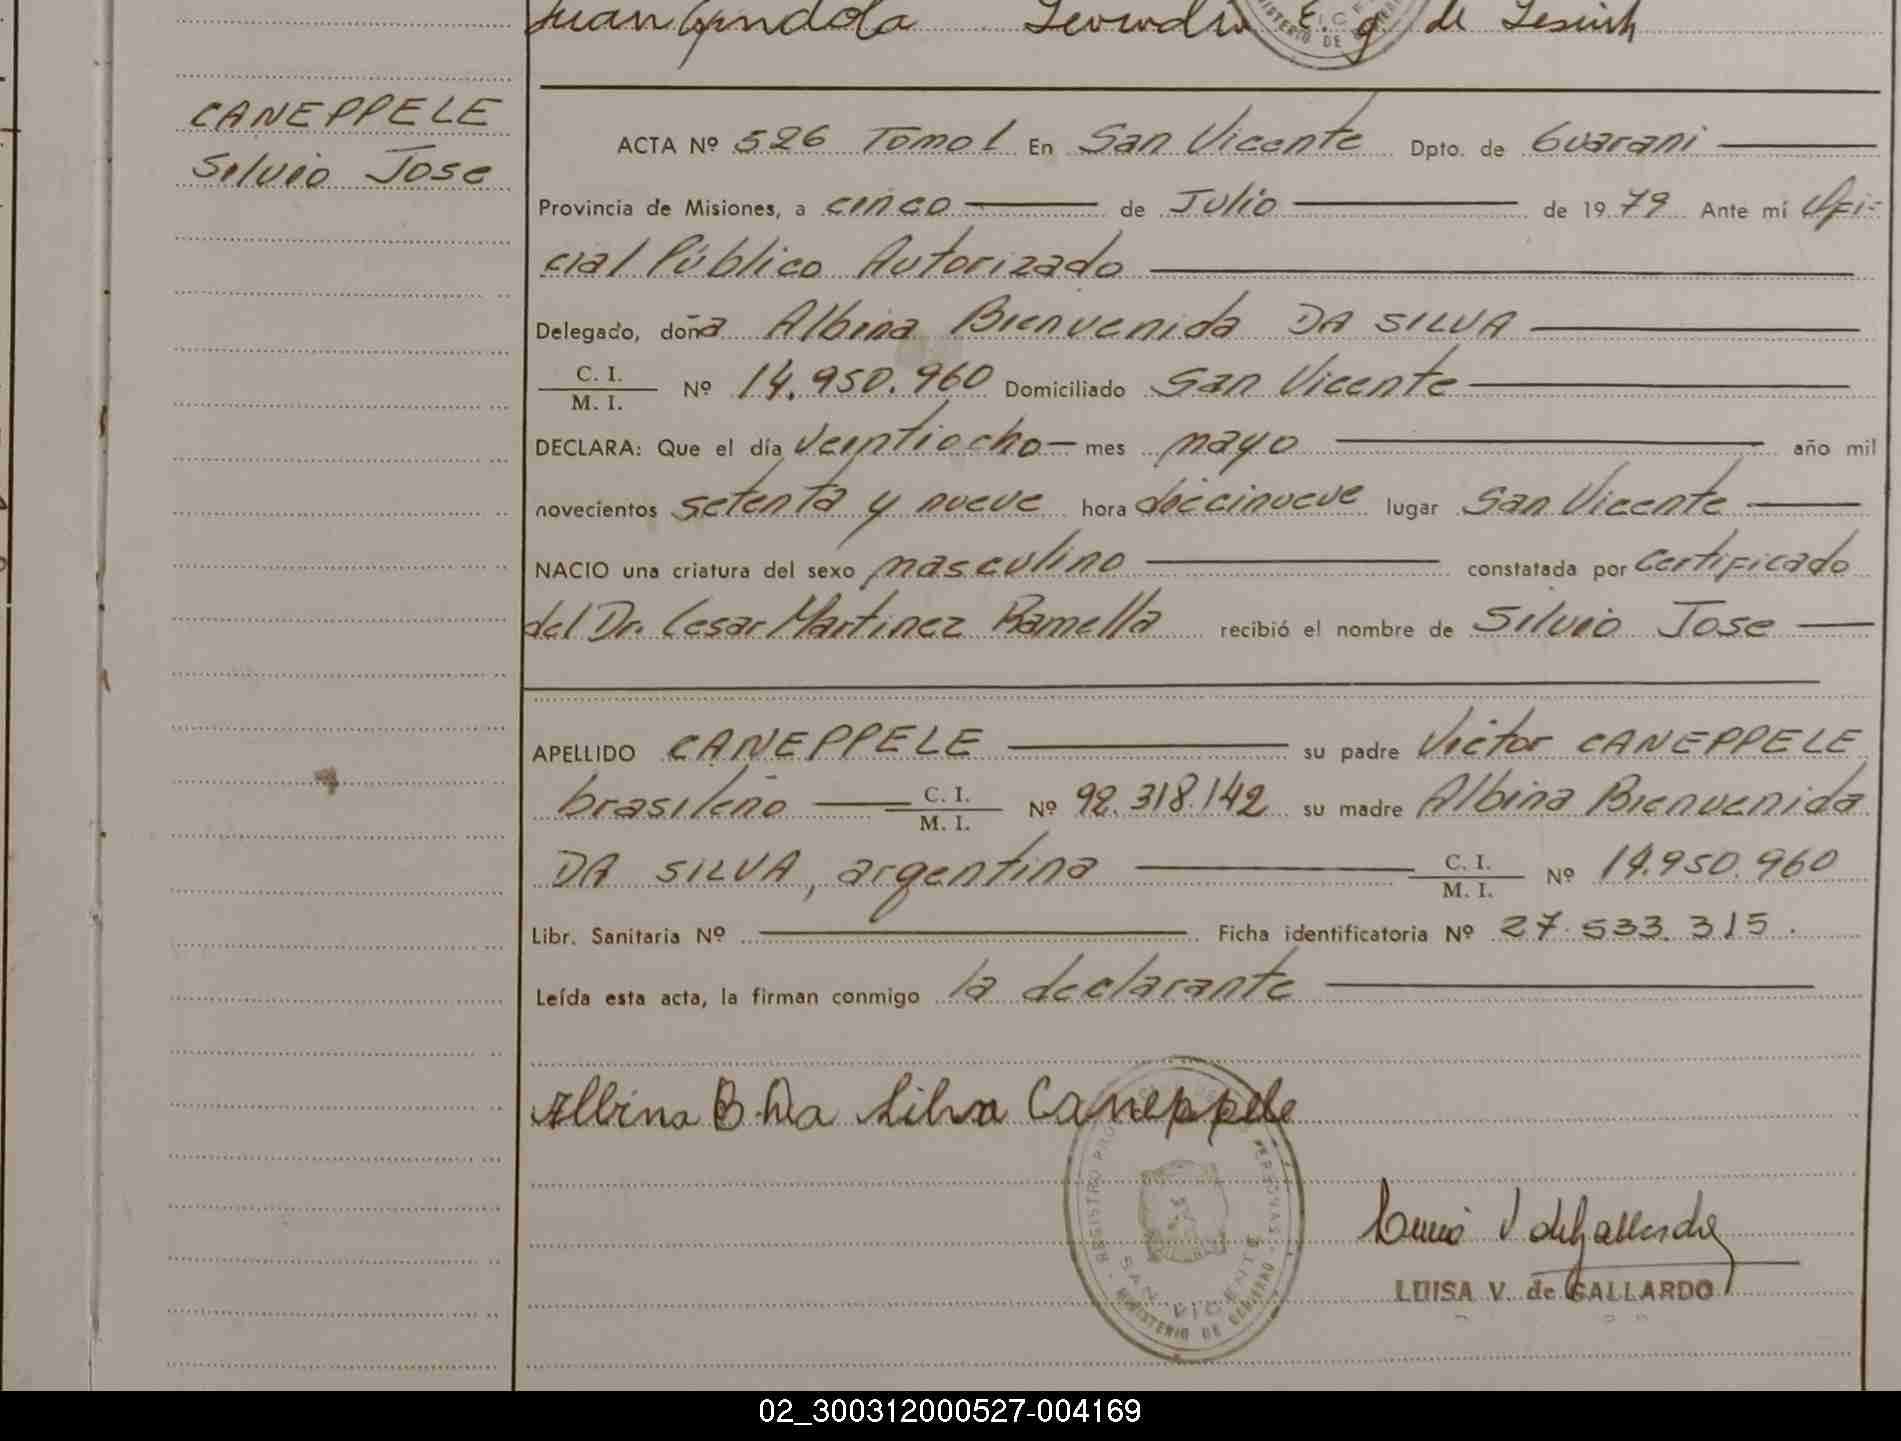 Juan
CANEPPELE
Silvio Jose
ACTA Nº 526 Tomo 1 En San Vicente Dpto. de Guarani
Provincia de Misiones, a cinco de Julio de 1979 Ante mí Ofi-
cial Público Autorizado
Delegado, doña Albina Bienvenida DA SILVA
C. I.
M. I. Nº 14.950.960 Domiciliado San Vicente
DECLARA: Que el día veintiocho mes mayo año mil
novecientos setenta y nueve hora diecinueve lugar San Vicente
NACIO una criatura del sexo masculino constatada por certificado
del Dr. Cesar Martinez Ramella recibió el nombre de Silvio Jose
APELLIDO CANEPPELE su padre Victor CANEPPELE
brasileño C. I. M. I. Nº 92.318.142 su madre Albina Bienvenida
DA SILVA, argentina C. I. M. I. Nº 14.950.960
Libr. Sanitaria Nº Ficha identificatoria Nº 27.533.315.
Leída esta acta, la firman conmigo la declarante
Albina B. Da Silva Caneppele
REGISTRO PERSONAS
SAN VICENTE
MINISTERIO DE GOBIERNO
LUISA V. de GALLARDO
02_300312000527-004169